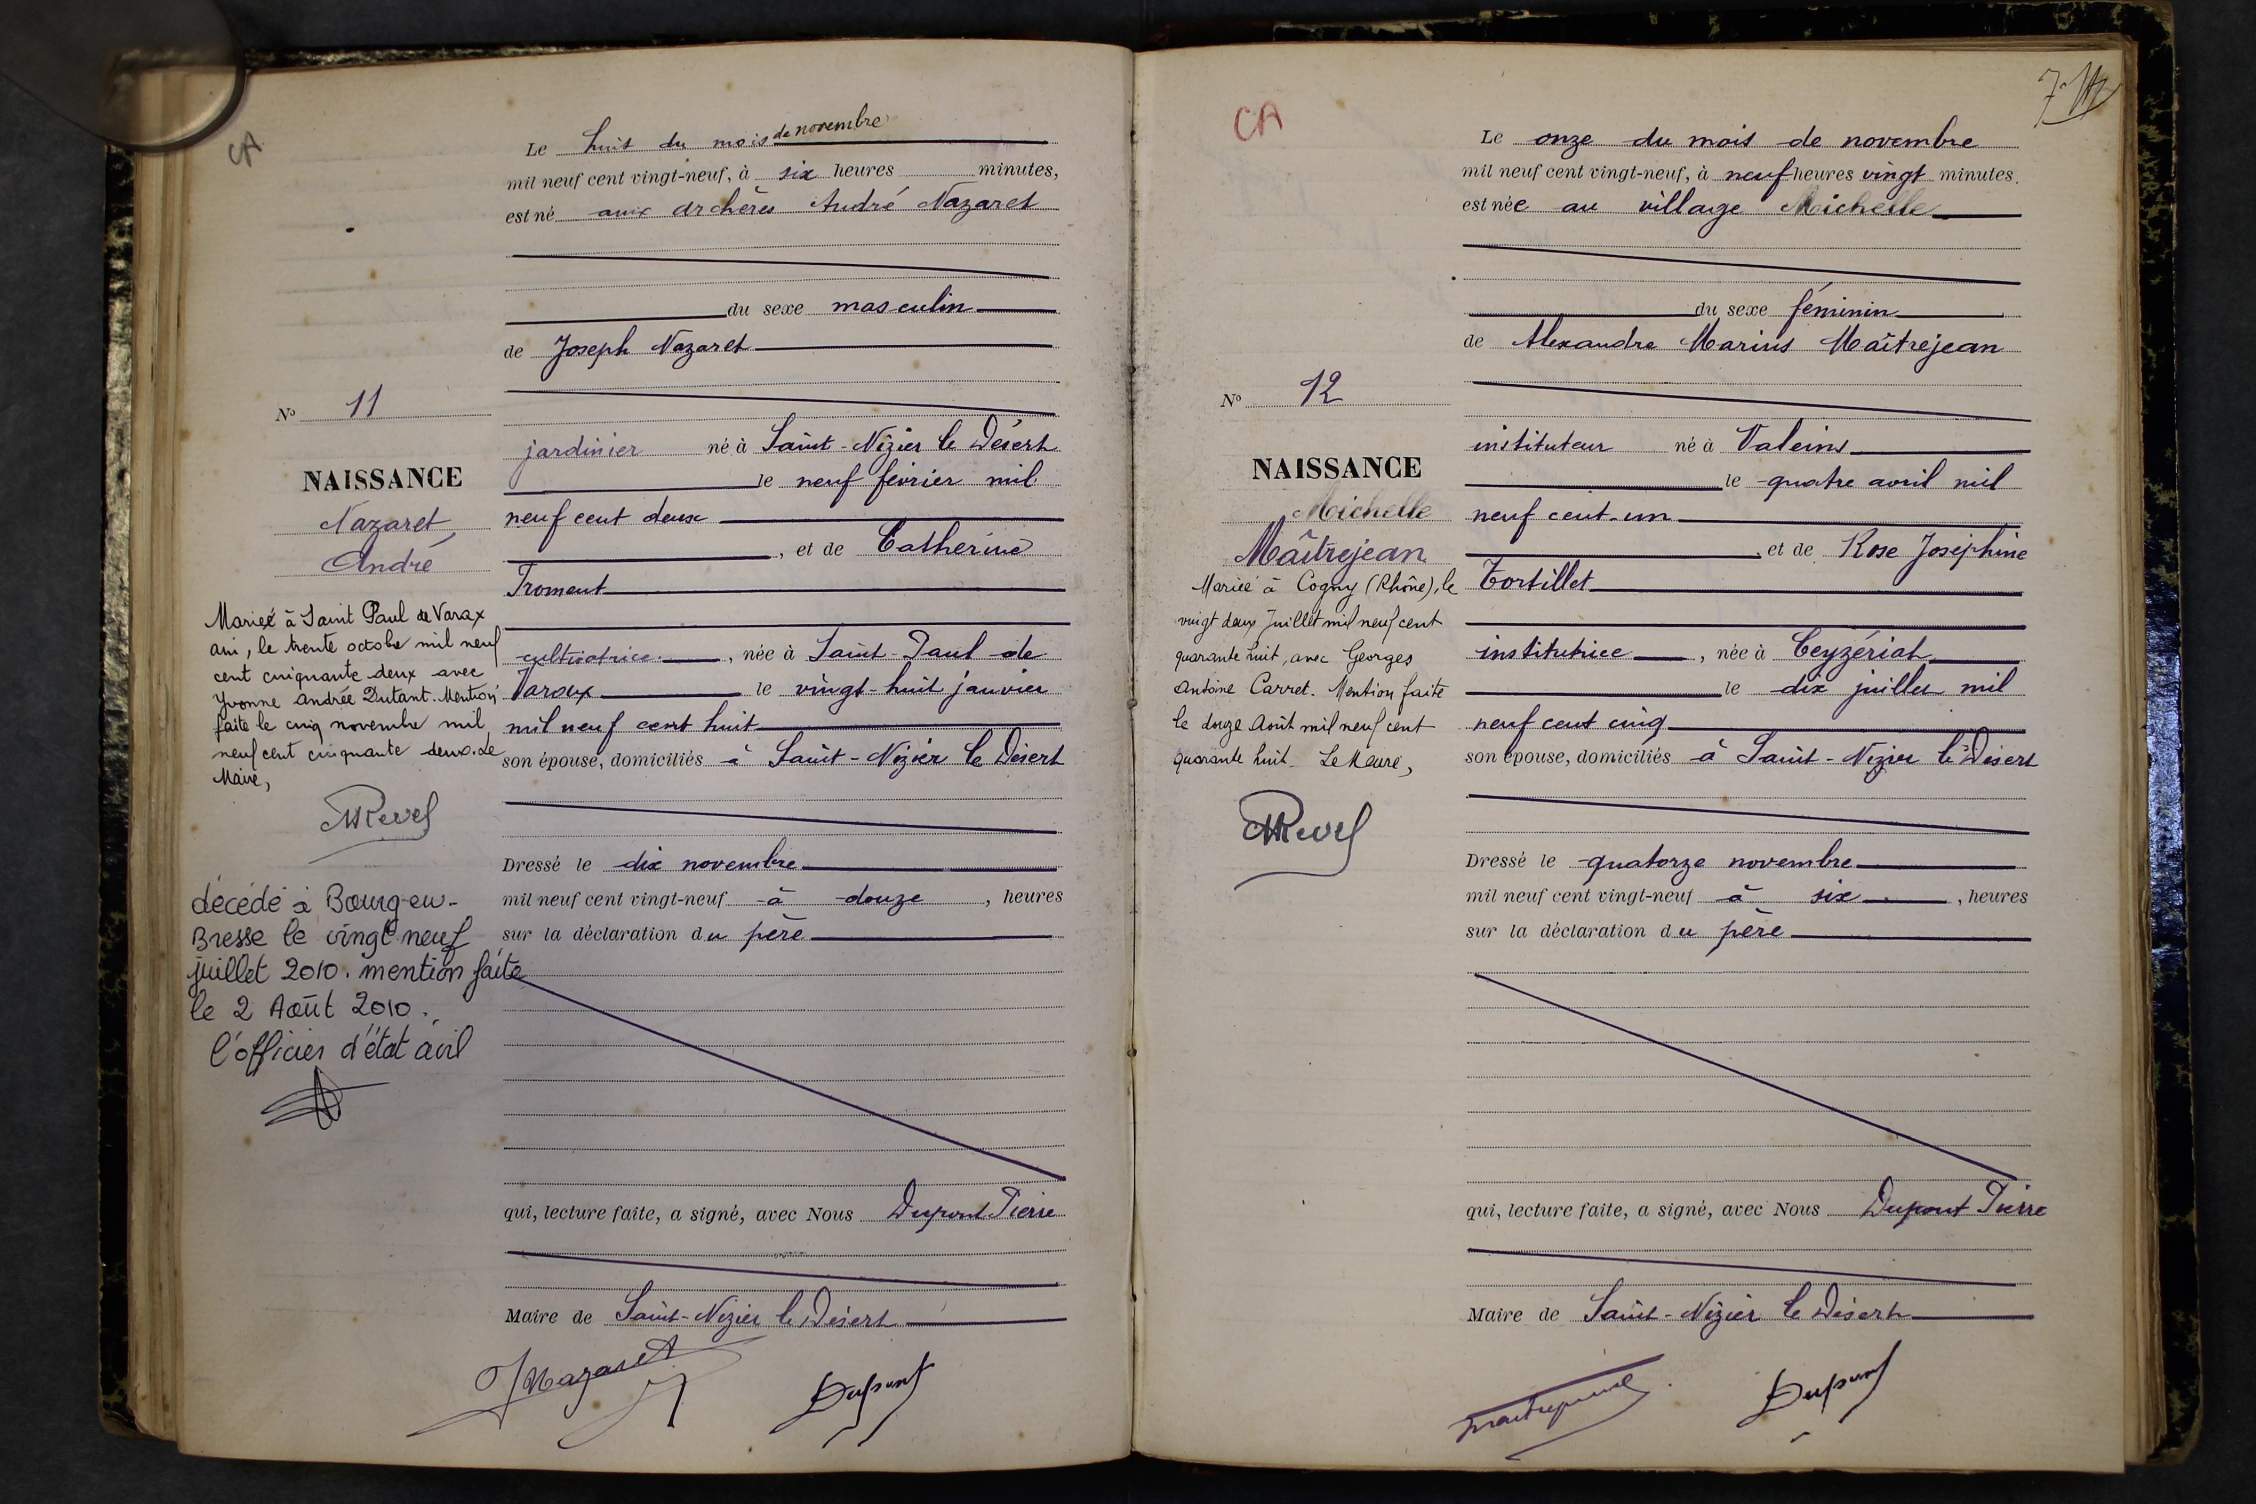 CA
Le huit du mois de novembre
mil neuf cent vingt-neuf, à six heures minutes,
est né aux archères André Nazaret
du sexe masculin
de Joseph Nazaret
N° 11
jardinier né à Saint-Nizier le Désert
NAISSANCE
le neuf février mil
Nazaret
neuf cent deux
André
, et de Catherine
Froment
Marié à Saint Paul de Varax
ain, le trente octobre mil neuf
cent cinquante deux avec
Yvonne Andrée Dutant. Mention
faite le cinq novembre mil
neuf cent cinquante deux. Le
Maire,
MRevel
cultivatrice , née à Saint-Paul-de
Varax le vingt-huit janvier
mil neuf cent huit
son épouse, domiciliés à Saint-Nizier le Désert
Dressé le dix novembre
mil neuf cent vingt-neuf à douze , heures
sur la déclaration du père
décédé à Bourg-en-
Bresse le vingt neuf
juillet 2010. mention faite
le 2 Août 2010.
l'officier d'état civil
qui, lecture faite, a signé, avec Nous Dupont Pierre
Maire de Saint-Nizier le Désert
J Nazaret
Dupont
CA
7
Le onze du mois de novembre
mil neuf cent vingt-neuf, à neuf heures vingt minutes.
est née au village Michelle
du sexe féminin
de Alexandre Marius Maîtrejean
N° 12
instituteur né à Valeins
NAISSANCE
le quatre avril mil
Michelle
neuf cent un
Maîtrejean
, et de Rose Joséphine
Tortillet
Mariée à Cogny (Rhône), le
vingt deux Juillet mil neuf cent
quarante huit, avec Georges
Antoine Carret. Mention faite
le douze Août mil neuf cent
quarante huit. Le Maire,
MRevel
institutrice , née à Ceyzériat
le dix juillet mil
neuf cent cinq
son épouse, domiciliés à Saint-Nizier le Désert
Dressé le quatorze novembre
mil neuf cent vingt-neuf à six , heures
sur la déclaration du père
qui, lecture faite, a signé, avec Nous Dupont Pierre
Maire de Saint-Nizier le Désert
Maîtrejean
Dupont